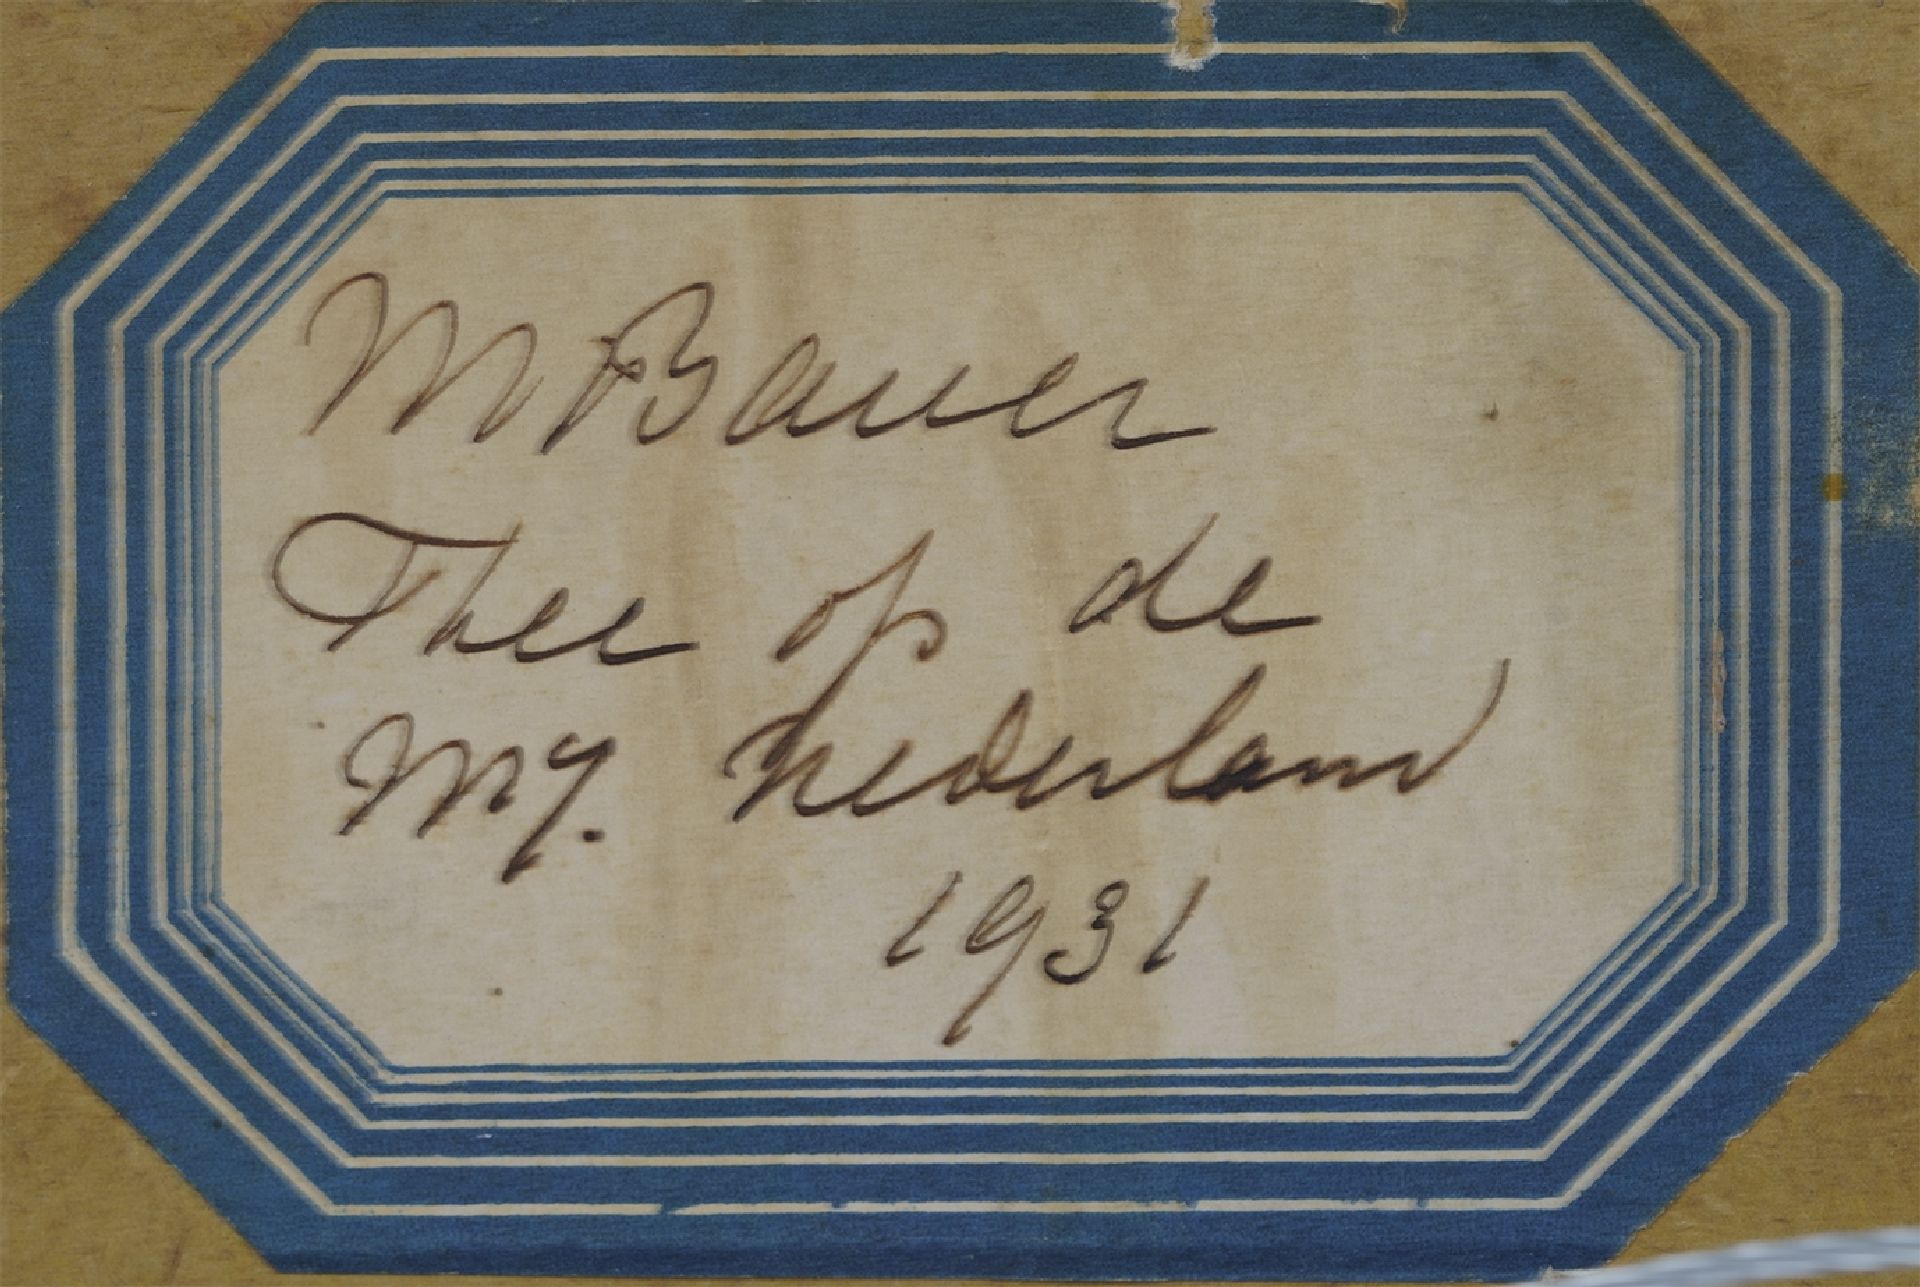 M Bauer
Thee op de
My. Nederland
1931